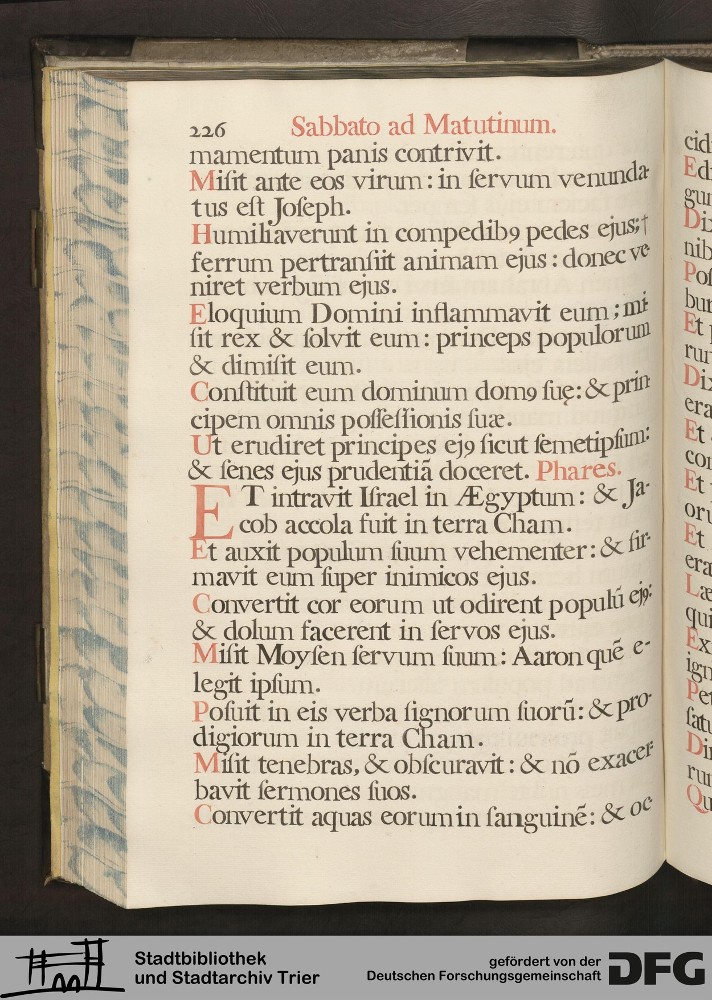 226 Sabbato ad Matutinum.
mamentum panis contrivit.
Miſit ante eos virum: in ſervum venunda-
tus eſt Joſeph.
Humiliaverunt in compedibꝰ pedes ejus;†
ferrum pertranſiit animam ejus: donec ve-
niret verbum ejus.
Eloquium Domini inflammavit eum; mi-
ſit rex & ſolvit eum: princeps populorum
& dimiſit eum.
Conſtituit eum dominum domꝰ ſuę: & prin-
cipem omnis poſſeſſionis ſuæ.
Ut erudiret principes ejꝰ ſicut ſemetipſum:
& ſenes ejus prudentiã doceret. Phares.
ET intravit Iſrael in Ægyptum: & Ja-
cob accola fuit in terra Cham.
Et auxit populum ſuum vehementer: & fir-
mavit eum ſuper inimicos ejus.
Convertit cor eorum ut odirent populũ ejꝰ:
& dolum facerent in ſervos ejus.
Miſit Moyſen ſervum ſuum: Aaron quẽ e-
legit ipſum.
Poſuit in eis verba ſignorum ſuorũ: & pro-
digiorum in terra Cham.
Miſit tenebras, & obſcuravit: & nõ exacer-
bavit ſermones ſuos.
Convertit aquas eorum in ſanguinẽ: & oc-
cid
Ed
gun
Dix
nib
Poſ
bur
Et p
rur
Dix
era
Et
cor
Et
oru
Et
era
Læ
qui
Ex
ign
Pet
ſatu
Di
rur
Qu
Stadtbibliothek
und Stadtarchiv Trier
gefördert von der
Deutschen Forschungsgemeinschaft
DFG